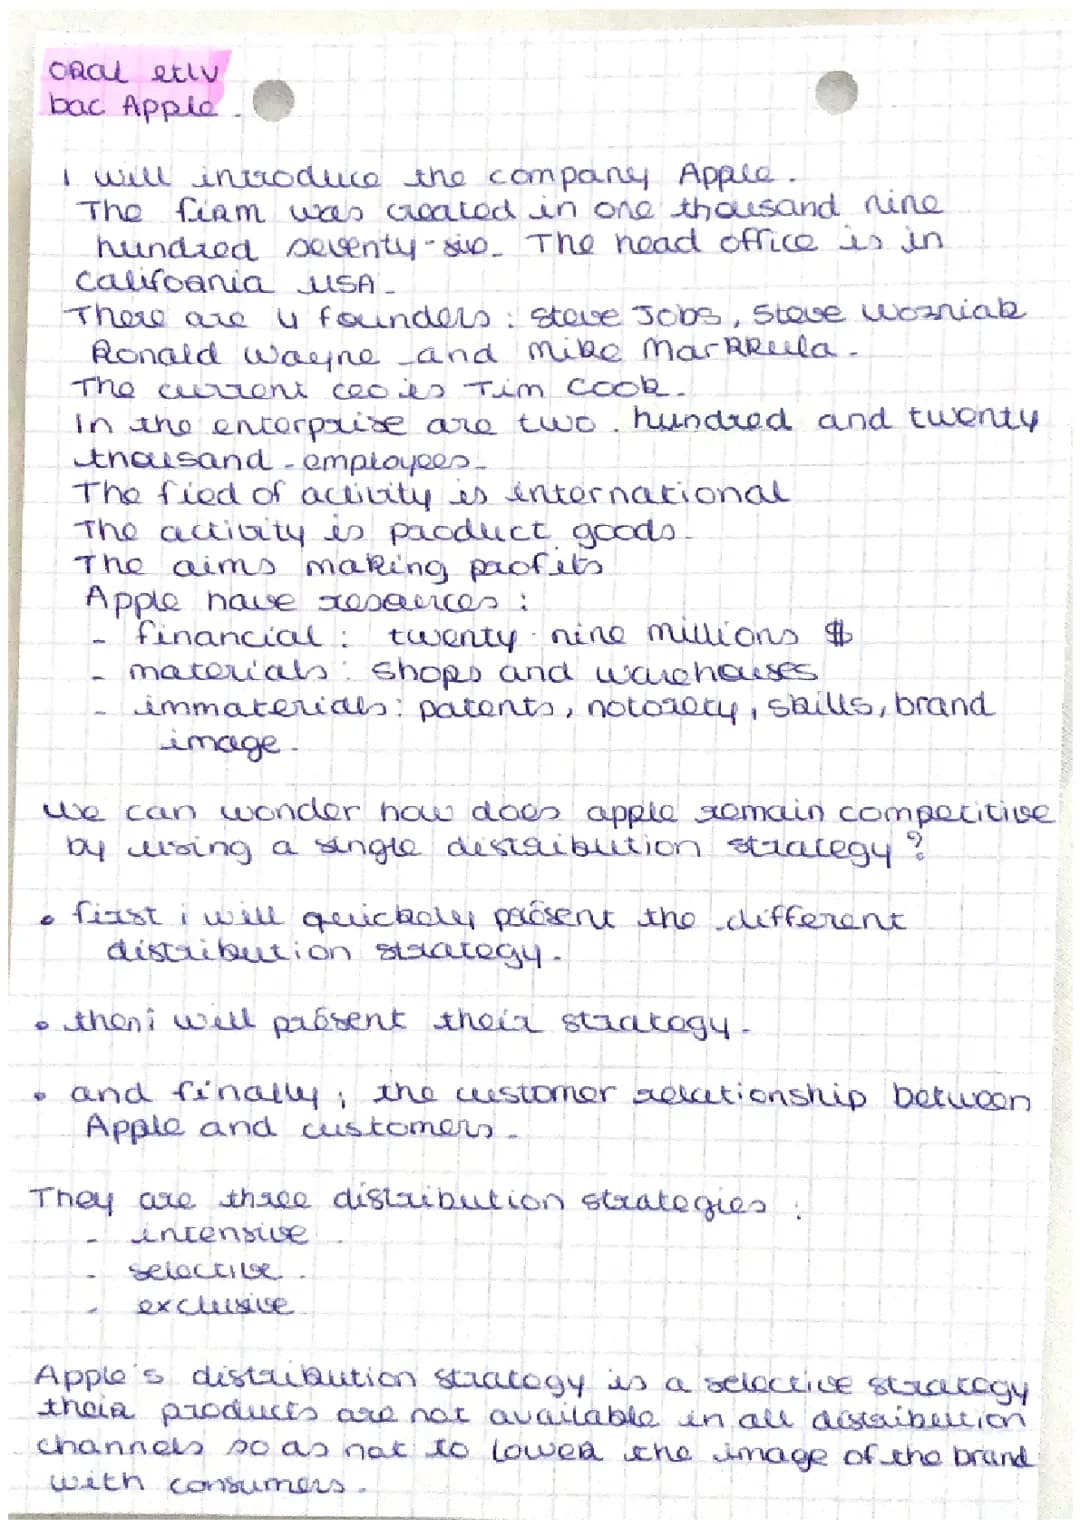 ORAL etlv
bac Apple.
I will introduce the company Apple.
The firm was created in one thousand nine
hundred seventy-six. The head office is in
California USA.
There are 4 founders : Steve Jobs, Steve Wozniak
Ronald Wayne and Mike Markkula.
The current ceo is Tim Cook.
In the enterprise are two hundred and twenty
thousand employees.
The fied of activity is international
The activity is product goods.
The aims making profits
Apple have resources :
- financial : twenty nine millions $
- materials : shops and warehouses
- immaterials : patents, notorety, skills, brand
image.
We can wonder how does apple remain competitive
by using a single distribution strategy ?
• first i will quickely présent the different
distribution strategy.
• then i will présent their strategy.
• and finally, the customer relationship between
Apple and customers.
They are three distribution strategies :
- intensive
- selective.
- exclusive
Apple's distribution strategy is a selective strategy
their products are not available in all distribution
channels so as not to lower the image of the brand
with consumers.